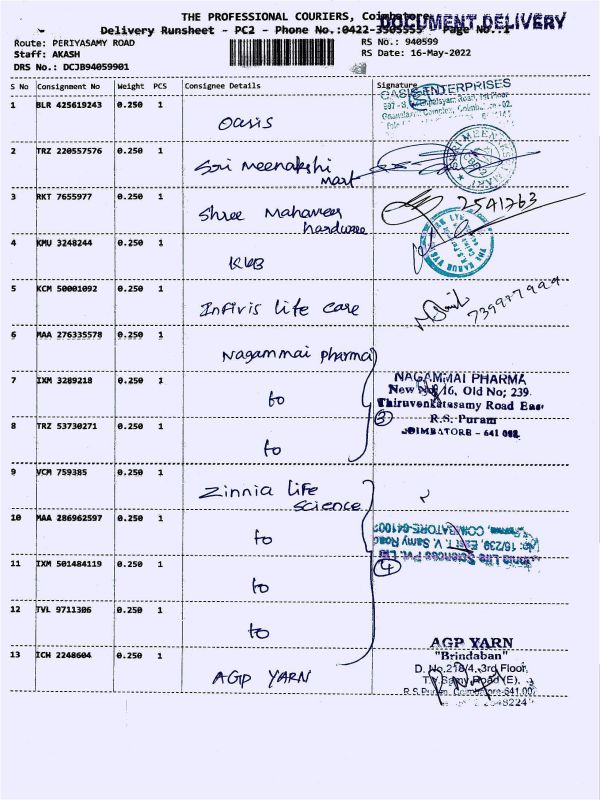 THE PROFESSIONAL COURIERS, Coimbatore
DOCUMENT DELIVERY
Delivery Runsheet - PC2 - Phone No.:0422-3505555 Page No.:1
Route: PERIYASAMY ROAD RS No.: 940599
Staff: AKASH RS Date: 16-May-2022
DRS No.: DCJB94059901
S No Consignment No Weight PCS Consignee Details Signature
1 BLR 425619243 0.250 1 Oasis
OASIS ENTERPRISES
2 TRZ 220557576 0.250 1 Sri Meenakshi
Mart
3 RKT 7655977 0.250 1 Shree Mahaveer
hardware
2541263
4 KMU 3248244 0.250 1 KVB
5 KCM 50001092 0.250 1 Infivis life care
6 MAA 276335578 0.250 1 Nagammai pharma
7 IXM 3289218 0.250 1 to
NAGAMMAI PHARMA
New No. 16, Old No; 239
Thiruvenkatasamy Road East
3 R.S. Puram
COIMBATORE - 641 002
8 TRZ 53730271 0.250 1 to
9 VCM 759385 0.250 1 Zinnia life
science
10 MAA 286962597 0.250 1 to
Zinnia Life Sciences Pvt. Ltd
No: 16/239, East T. V. Samy Road
11 IXM 501484119 0.250 1 to
4
12 TVL 9711306 0.250 1 to
13 ICH 2248604 0.250 1 AGP YARN
AGP YARN
"Brindaban"
D. No.218/4, 3rd Floor,
T.V. Samy Road (E),
R.S.Puram, Coimbatore-641 002